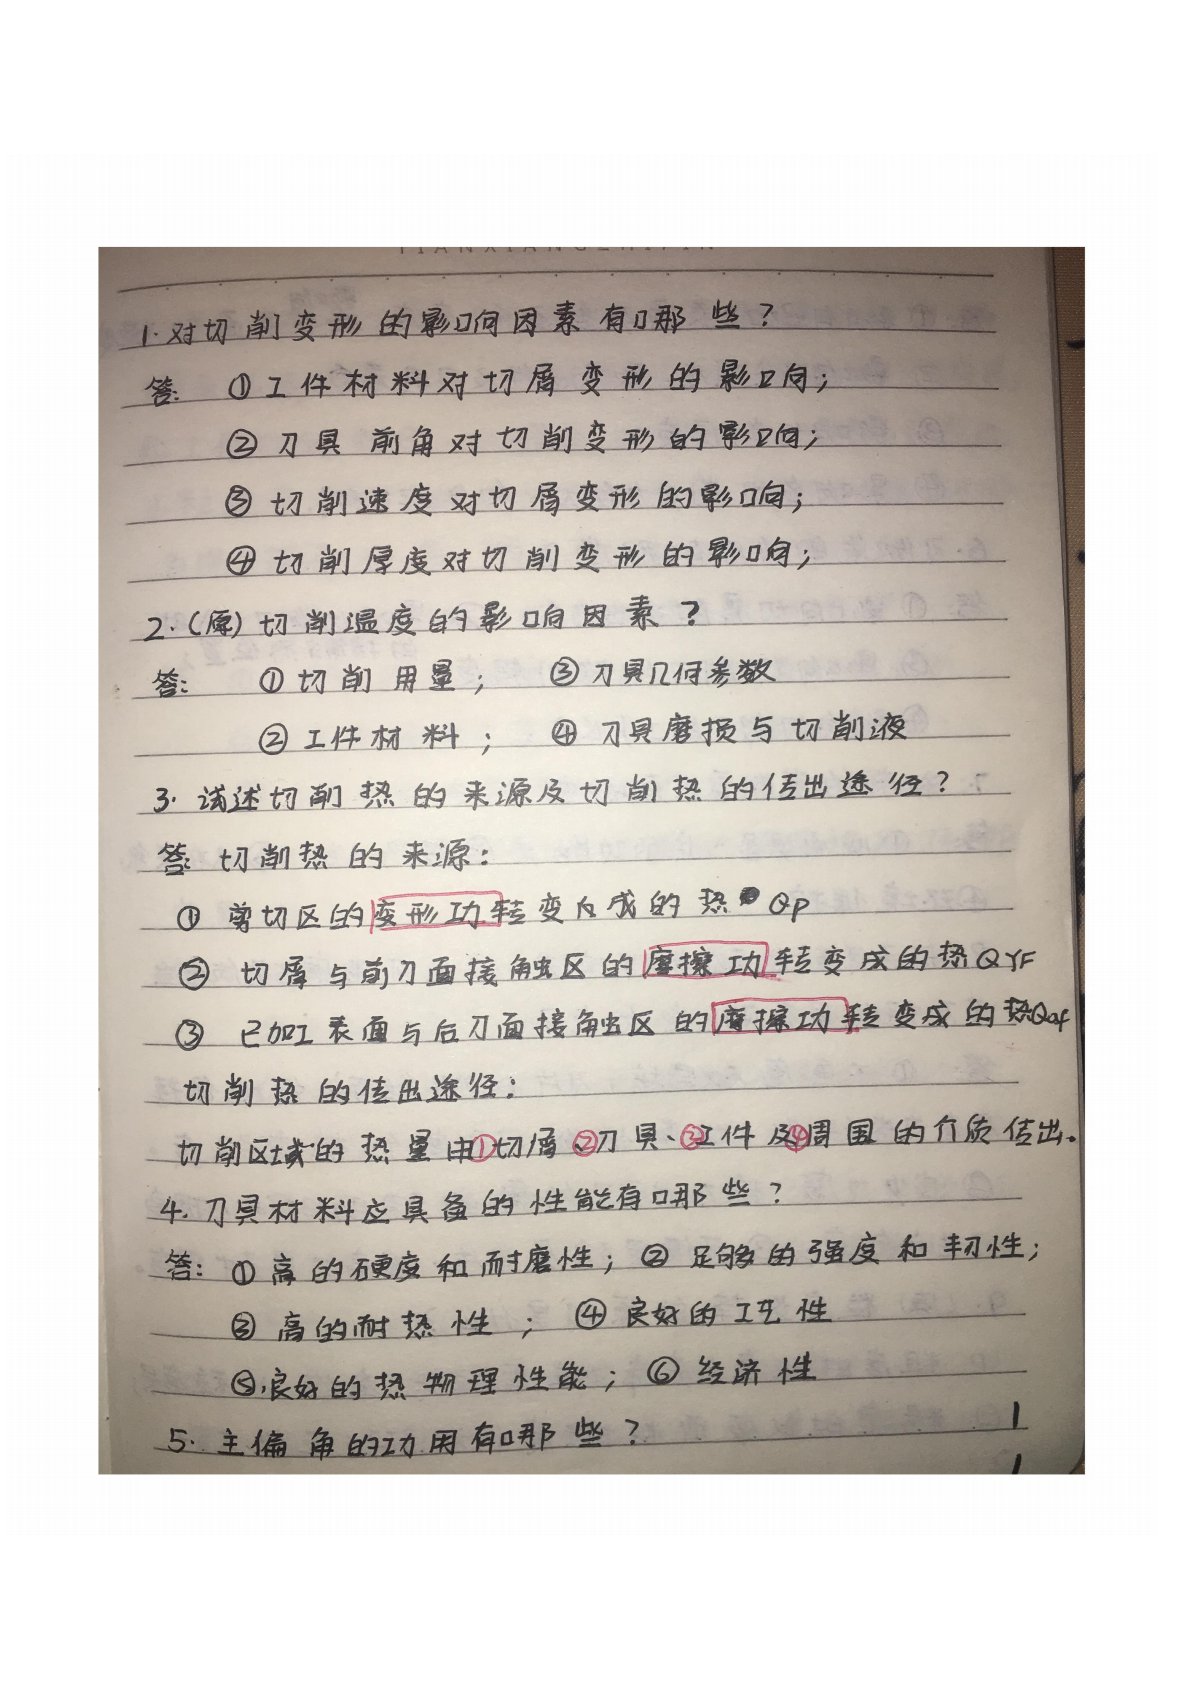 1.对切削变形的影响因素有哪些?
答: ①工件材料对切屑变形的影响;
②刀具前角对切削变形的影响;
③切削速度对切屑变形的影响;
④切削厚度对切削变形的影响;
2.(原)切削温度的影响因素?
答: ①切削用量; ③刀具几何参数
②工件材料; ④刀具磨损与切削液
3.试述切削热的来源及切削热的传出途径?
答:切削热的来源:
①剪切区的变形功转变成的热Qp
②切屑与前刀面接触区的摩擦功转变成的热QYF
③已加工表面与后刀面接触区的摩擦功转变成的热Qaf
切削热的传出途径:
切削区域的热量由①切屑、②刀具、③工件及④周围的介质传出.
4.刀具材料应具备的性能有哪些?
答:①高的硬度和耐磨性;②足够的强度和韧性;
③高的耐热性; ④良好的工艺性
⑤良好的热物理性能;⑥经济性
5.主偏角的功用有哪些?
1